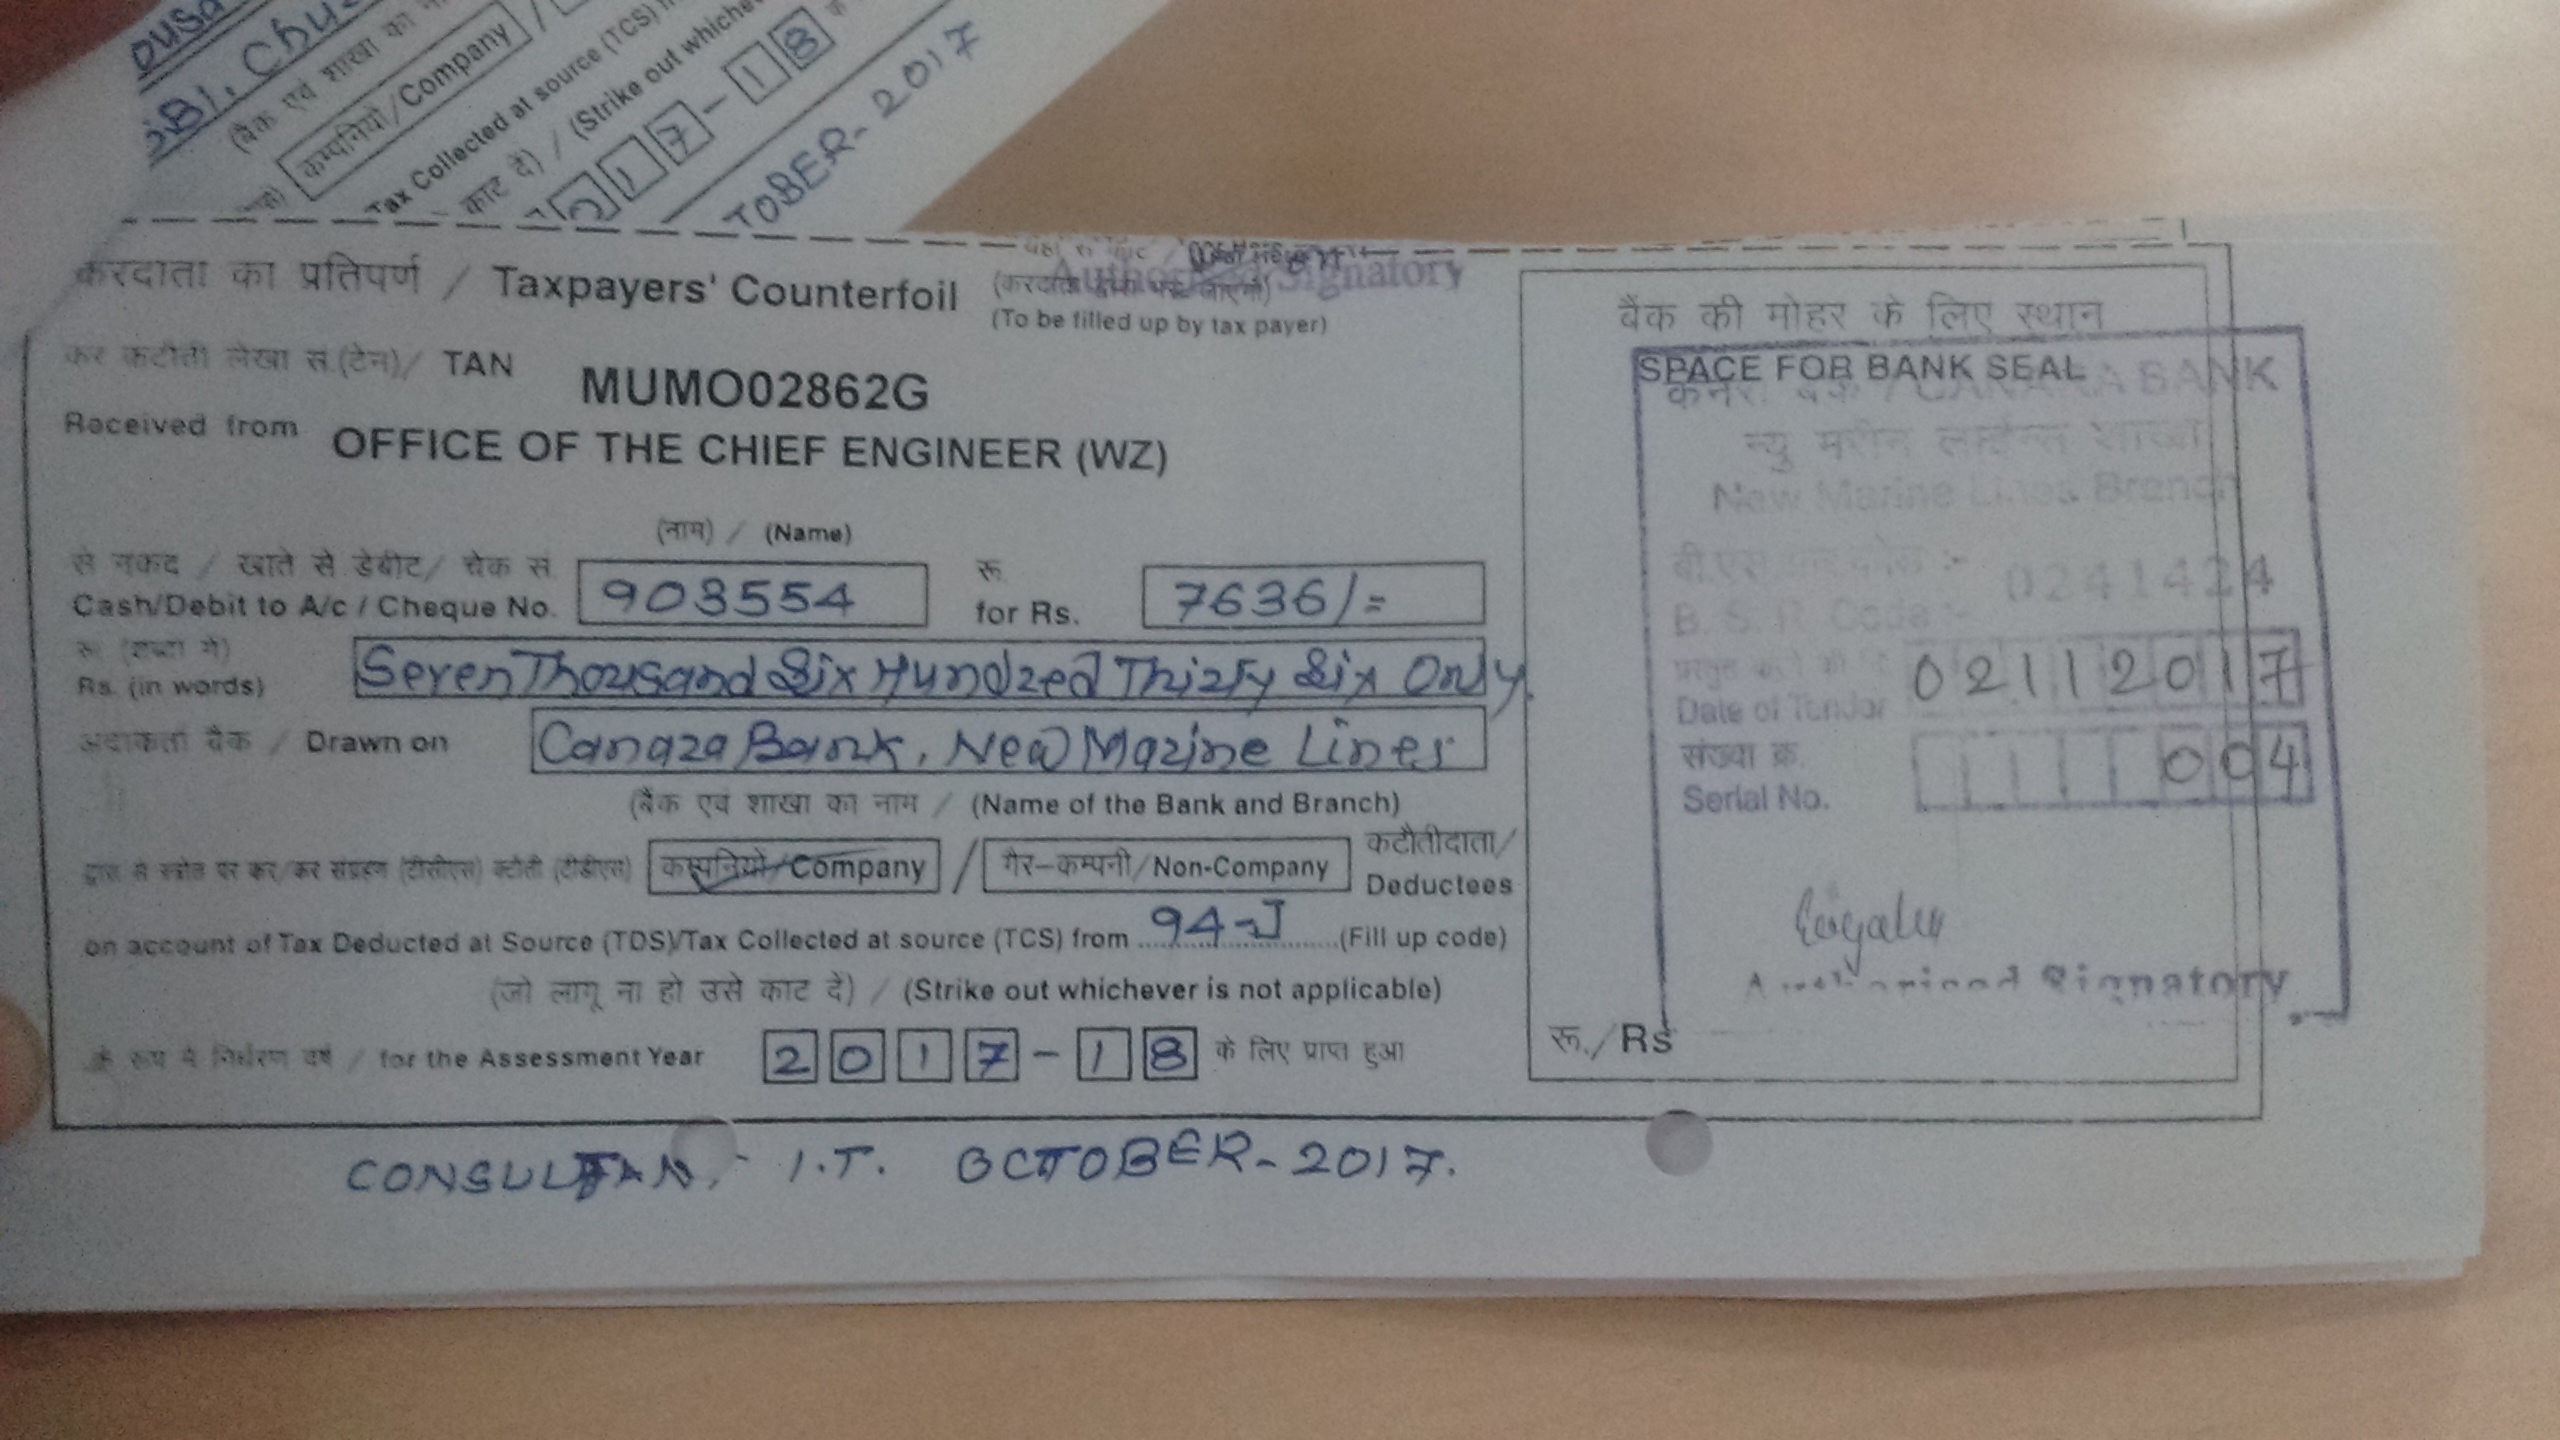 ousa
BI, Chu
(बैंक एवं शाखा का
कम्पनियो/Company /
Tax Collected at source (TCS)
काट दें) / (Strike out whichev
17-18
TOBER-2017
करदाता का प्रतिपर्ण / Taxpayers' Counterfoil
Authorised Signatory
(To be filled up by tax payer)
कर कटौती लेखा सं.(टेन)/ TAN MUMO02862G
Received from OFFICE OF THE CHIEF ENGINEER (WZ)
(नाम) / (Name)
से नकद / खाते से डेबीट/ चेक सं. रू
Cash/Debit to A/c / Cheque No. 903554 for Rs. 7636/=
रू (शब्दा मे)
Rs. (in words) Seven Thousand Six Hundred Thirty Six Only.
अदाकर्ता बैंक / Drawn on Canara Bank, New Marine Lines
(बैंक एवं शाखा का नाम / (Name of the Bank and Branch)
द्वारा से स्त्रोत पर कर/कर संग्रहण (टीसीएस) कटोती (टीडीएस) कम्पनियो/Company / गैर-कम्पनी/Non-Company कटौतीदाता/
Deductees
on account of Tax Deducted at Source (TDS)/Tax Collected at source (TCS) from 94-J (Fill up code)
(जो लागू ना हो उसे काट दें) / (Strike out whichever is not applicable)
के रूप मे निर्धरण वर्ष / for the Assessment Year 2017-18 के लिए प्राप्त हुआ
बैंक की मोहर के लिए स्थान
SPACE FOR BANK SEAL
CANARA BANK
न्यु मरीन लाईन्स शाखा
New Marine Lines Branch
0241424
B. S. R. Code :-
Date of Tender 02112017
संख्या क्र.
Serial No. 004
Authorised Signatory
रू./Rs
CONSULTAN, - I.T. OCTOBER-2017.